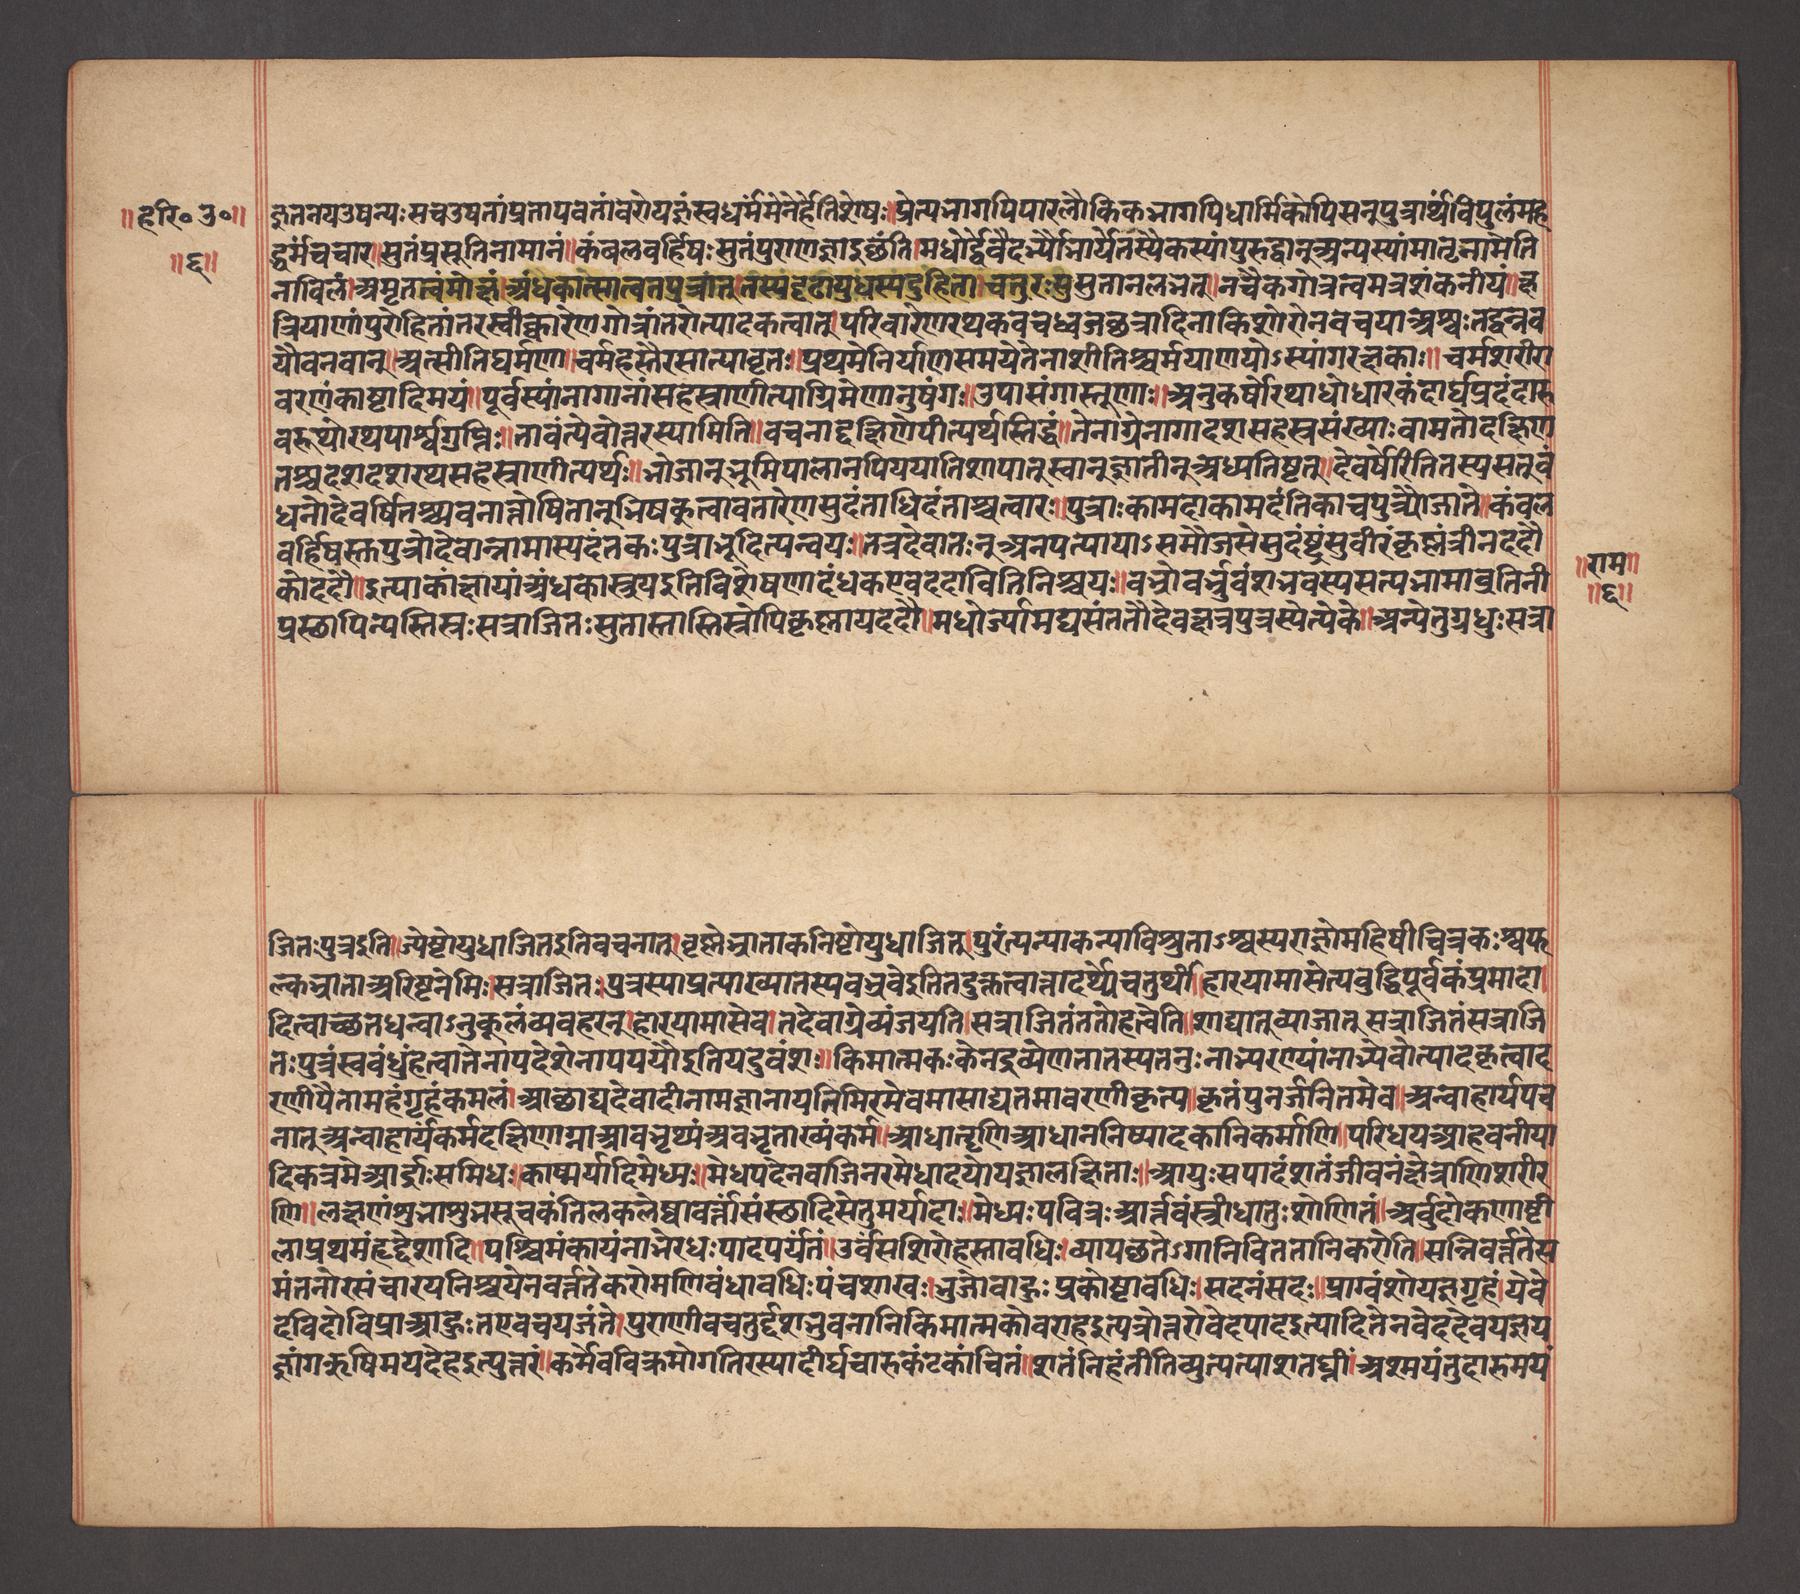 ॥हरि॰ उ॰॥
॥६॥
ज्ञुतनयउषन्यःसचउषतांप्रतापवतांवरोयज्ञंस्वधर्ममेनेर्हेतिशेषः॥प्रेत्यभागपिपारलौकिकभागपिधार्मिकोपिसन्पुत्रार्थंविपुलंमह
द्धर्मंचचार॥सुतंप्रसूतिनामानं॥कंबलबर्हिषःसुतंपुराणज्ञाइछंति।मधोर्द्वेवैदर्भ्यौभार्येतस्यैकस्यांपुरुद्वान्अन्यस्यांमातृनामेति
नाविलं।अमृतत्वंमोक्षं।अंधकात्सात्वतपुत्रात्।तस्यंदृढायुधस्यदुहिता।चतुरःसुसुतानलभेत्।नचैकगोत्रत्वमत्रशंकनीयं॥क्ष
त्रियाणांपुरोहितांतरस्वीक्कारेणगोत्रांतरोत्पादकत्वात्।परिवारेणरथकवचध्वजछत्रादिनाकिशोरोनवचयाअश्वःतद्वन्नव
यौवनवान्।अत्सीतिघर्मणा॥चर्महस्तैरसात्यावृतः॥प्रथमेनिर्याणसमयेतेनाशीतिश्चर्मयाणयोऽस्यांगरक्षकाः॥चर्मशरीरा
वरणंकाष्टादिमयं॥पूर्वस्यांनागानांसहस्राणीत्याग्रिमेणानुषंगः॥उपासंगास्तूणाः॥अनुकर्षोरथाधोधारकंदार्घप्रदंदारु
वरूथोरथपार्श्वग्रप्तिः॥तावंत्येवोत्तरस्यामिति॥वचनाद्दक्षिणेपीत्यर्थस्तिद्धं॥तेनाग्रेनागादशसहस्रसंख्याःवामतोदक्षिण
तश्चदशदशरथसहस्राणीत्यर्थः॥भोजान्भूमिपालानपिययातिशापात्स्वान्ज्ञातीन्अध्यतिष्ठत्॥देवर्षेरितितस्यसत्वं
धनोदेवर्षितश्च्यवनात्तोषितान्भिषकुत्वावतारेणसुदंताधिदंताश्चत्वारः॥पुत्राःकामदाकामदंतिकाचपुत्र्यौजाते॥कंबल
बर्हिषस्तपुत्रोदेवान्नामास्यदंतकःपुत्राभूदित्यन्वयः॥तत्रदेवातःनूअनपत्यायाऽसमौजसेसुदंष्ट्रंसुवीरंकृष्णंत्रीनददौ
कोददौ॥इत्याकांक्षायांअंधकोस्त्रयइतिविशेषणादंधकएवददावितिनिश्चयः॥बभ्रोर्बभ्रुवंशभवस्यसत्यभामाव्रतिनी
प्रस्छापिन्यस्तिस्त्रःसत्राजितःसुतास्तास्तिस्त्रोपिकृष्णायददौ॥मधोर्ज्यामद्यसंततौदेवक्षत्रपुत्रस्येत्येके॥अन्येतुग्रधुःसत्रा
॥राम॥
॥६॥
जितःपुत्रइति।ज्येष्टोयुधाजितइतिवचनात्।वृष्णेर्भ्राताकनिष्टोयुधाजित्।पुरंत्यन्याकन्याविश्रुताऽश्वस्यराज्ञोमहिषीचित्रकःश्वफ
ल्कभ्राताअरिष्टनेमिः।सत्राजितः।पुत्रस्याप्रत्याख्यातस्यबभ्रवेइतितदुक्तत्वात्तादर्थ्येचतुर्थी।हारयामासेत्यबुद्धिपूर्वकंप्रमादा
दित्वाच्छतधन्वाऽनुकूलंव्यवहरन्।हारयामासेव।तदेवाग्रेव्यंजयति।सत्राजितंततोहत्वेति॥शाद्यात्व्याजात्सत्राजितंसत्राजि
तःपुत्रंस्वबंधुंहत्वातेनापदेशेनापययौइतियदुवंशः॥किमात्मकःकेनद्रव्येणतातस्यतनुःनाभ्यरण्यांनाभ्येवोत्पादकृत्वाद
रणीयैतामहंगृहंकमलं।आछाद्यदेवादीनामज्ञानायतिमिरमेवमासाद्यतमावरणीकृत्य॥कृतंपुनर्जनितमेव॥अन्वाहार्यपच
नात्अन्वाहार्यंकर्मदक्षिणाग्नाआवभृथ्यंअवभृताख्यंकर्म।आधातृणिआधाननिष्पादकानिकर्माणि॥परिधयआहवनीया
दिकत्रमेआर्द्राःसमिधः॥काष्मर्यादिमेध्यः॥मेधपदेनवाजिनरमेधादयोयज्ञालक्षिताः॥आयुःसपादंशतंजीवनंक्षेत्राणिशरीर
णि॥लक्षणंशुभाशुभसूचकंतिलकलेष्वावर्त्तासंस्छादिसेतुमर्यादा॥मेध्यःपवित्रःआर्त्तवंस्त्रीधातुःशोणितं॥अर्बुदोकणाष्टी
लाप्रथमंहृद्देशादि॥पश्चिमंकायंनाभेरधःपादपर्यंतं॥उर्वसशिरोहस्तावधिः।व्यायछतेऽगानिविततानिकरोति॥सन्निवर्त्ततेस
मंतनोरसंचारयनिश्चयेनवर्त्ततेकरोमणिबंधावधिःपंचशाखः।भुजोबाहुःप्रकोष्टावधिः।सदनंसदः॥प्राग्वंशोयज्ञगृहं।येवे
देविदोविप्राआहुःतएवचयजंते।पुराणीवचतुर्द्दशभुवनानिकिमात्मकोवराहइत्यत्रोत्तरोवेदपादइत्यादितेनवेददेवयज्ञय
ज्ञांगऋषिमयदेहइत्युत्तरं।कर्मैवविक्रमोगतिरस्यादीर्घचारुकंटकांचितं॥शतंनिहंतीतिव्युत्पत्याशतघ्नी।अश्मयंतुदारुमयं